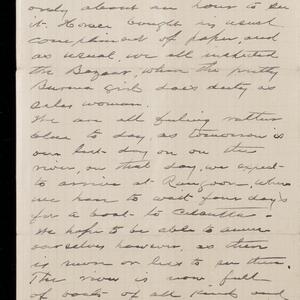 only about an hour to see
it. Homer bought is usual
complement of paper, and
as usual, we all inspected
the Bazaar, when the pretty
Burma girls does duty as
sales woman.
We are all feeling rather
blue to day, as tomorrow is
our last day on on this
river, on that day, we expect
to arrive at Rangoon, where
we have to wait four days
for a boat to Calcutta.
We hope to be able to amuse
ourselves however, as there
is much on her to see there.
The river is now full
of boats of all kinds and